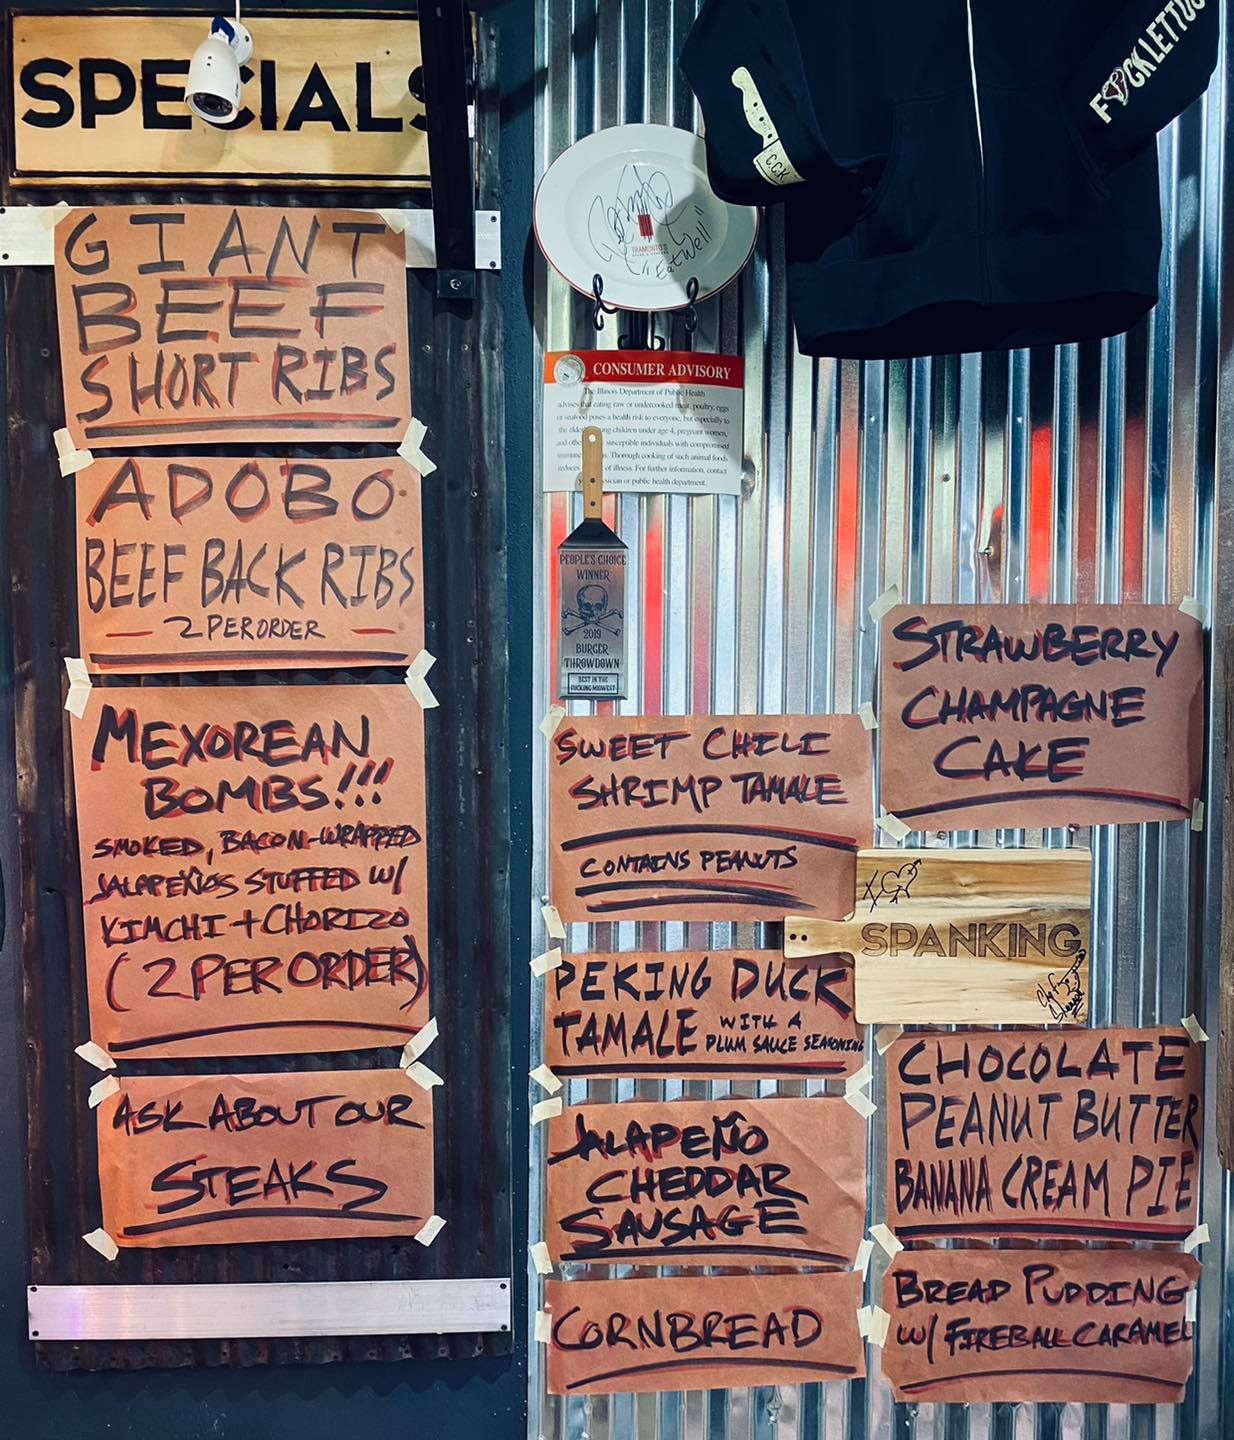 SPECIALS
GIANT
BEEF
SHORT RIBS
ADOBO
BEEF BACK RIBS
— 2 PER ORDER —
MEXOREAN
BOMBS!!!
SMOKED, BACON-WRAPPED
JALAPEÑOS STUFFED W/
KIMCHI + CHORIZO
(2 PER ORDER)
ASK ABOUT OUR
STEAKS
F CK LETTUC
C.C.K
TRAMONTO'S
"Eat Well"
CONSUMER ADVISORY
The Illinois Department of Public Health
advises that eating raw or undercooked meat, poultry, eggs
or seafood poses a health risk to everyone, but especially to
the elderly, young children under age 4, pregnant women,
and other susceptible individuals with compromised
immune systems. Thorough cooking of such animal foods
reduces of illness. For further information, contact
your physician or public health department.
PEOPLE'S CHOICE
WINNER
2019
BURGER
THROWDOWN
BEST IN THE
FUCKING MIDWEST
SWEET CHILI
SHRIMP TAMALE
CONTAINS PEANUTS
PEKING DUCK
TAMALE WITH A
PLUM SAUCE SEASONING
JALAPEÑO
CHEDDAR
SAUSAGE
CORNBREAD
STRAWBERRY
CHAMPAGNE
CAKE
I
SPANKING
CHOCOLATE
PEANUT BUTTER
BANANA CREAM PIE
BREAD PUDDING
W/ FIREBALL CARAMEL